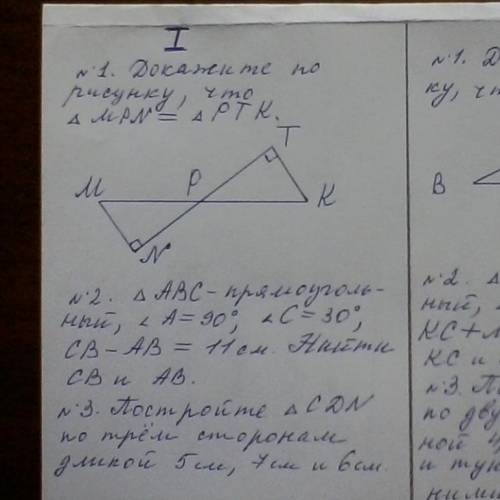 I
№1. Докажите по
рисунку, что
△MPN = △PTK.
T
M
P
K
N
№2. △ABC - прямоуголь-
ный, ∠A=90°, ∠C=30°,
CB-AB = 11 см. Найти
CB и AB.
№3. Постройте △CDN
по трём сторонам
длиной 5см, 7см и 6см.
№1. Д
ку, чт
B
№2. △
ный,
KC+
KC и
№3. По
по дву
ной
и туп
ними